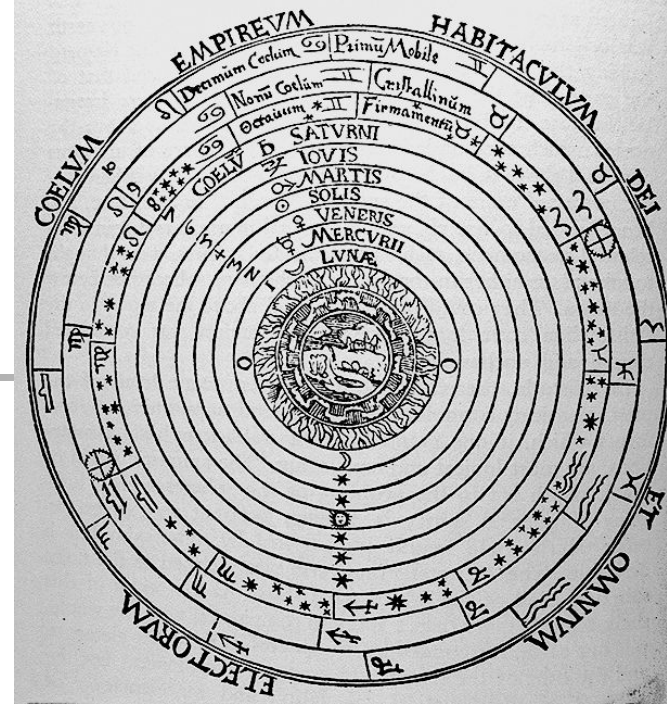 COELVM EMPIREVM HABITACVLVM DEI ET OMNIVM ELECTORVM
Decimum Coelum Primū Mobile
Nonū Coelum Cristallinum
Octauum Firmamentū
COELŪ SATVRNI
IOVIS
MARTIS
SOLIS
VENERIS
MERCVRII
LVNÆ
7
6
5
4
3
2
1